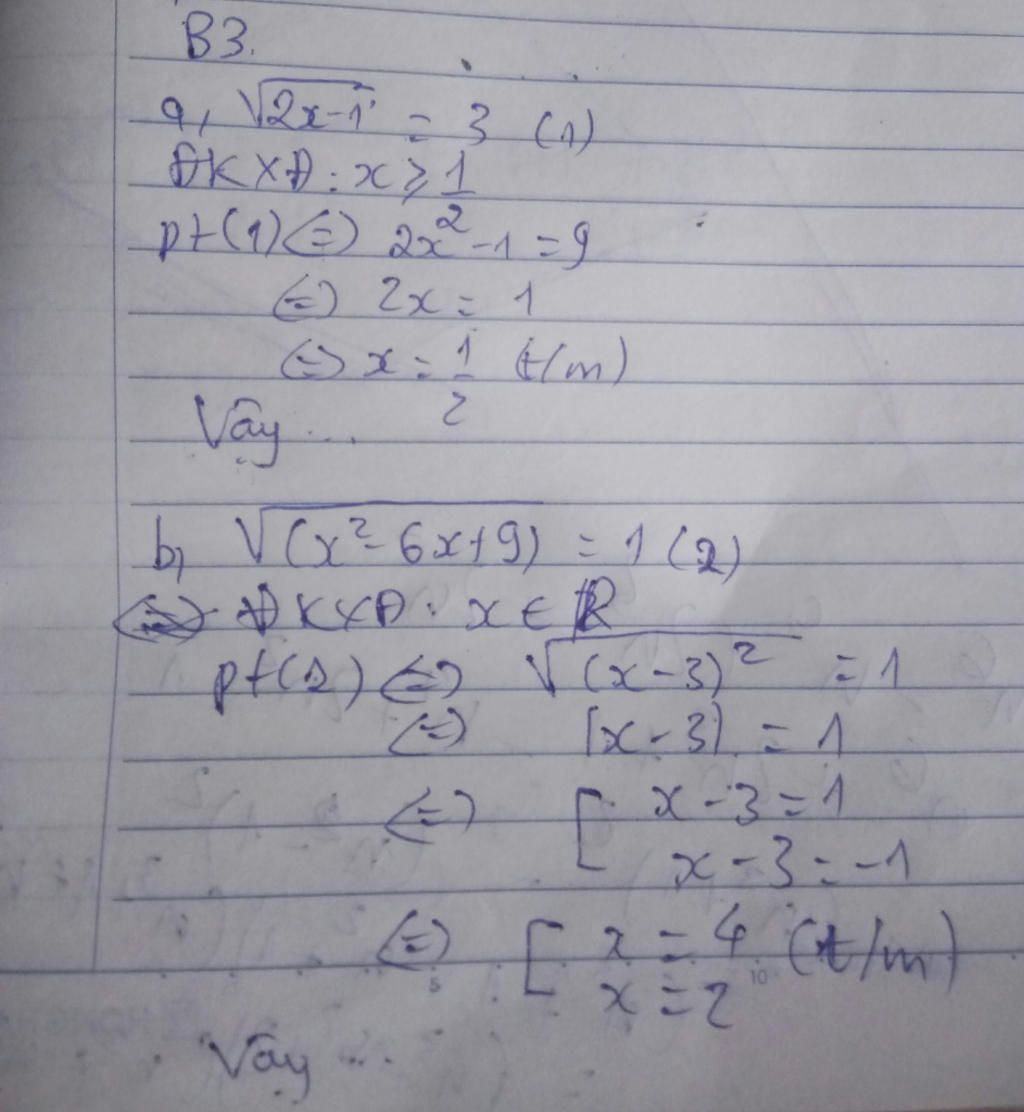 B3.
a, √(2x-1) = 3 (1)
ĐKXĐ: x ≥ 1/2
pt(1) <=> 2x² -1 = 9
<=> 2x = 1
<=> x = 1/2 (t/m)
Vậy ...
b, √(x² - 6x + 9) = 1 (2)
ĐKXĐ: x ∈ R
pt(2) <=> √(x-3)² = 1
<=> |x-3| = 1
<=> [ x - 3 = 1
x - 3 = -1
<=> [ x = 4 (t/m)
x = 2
5 10
Vậy ...